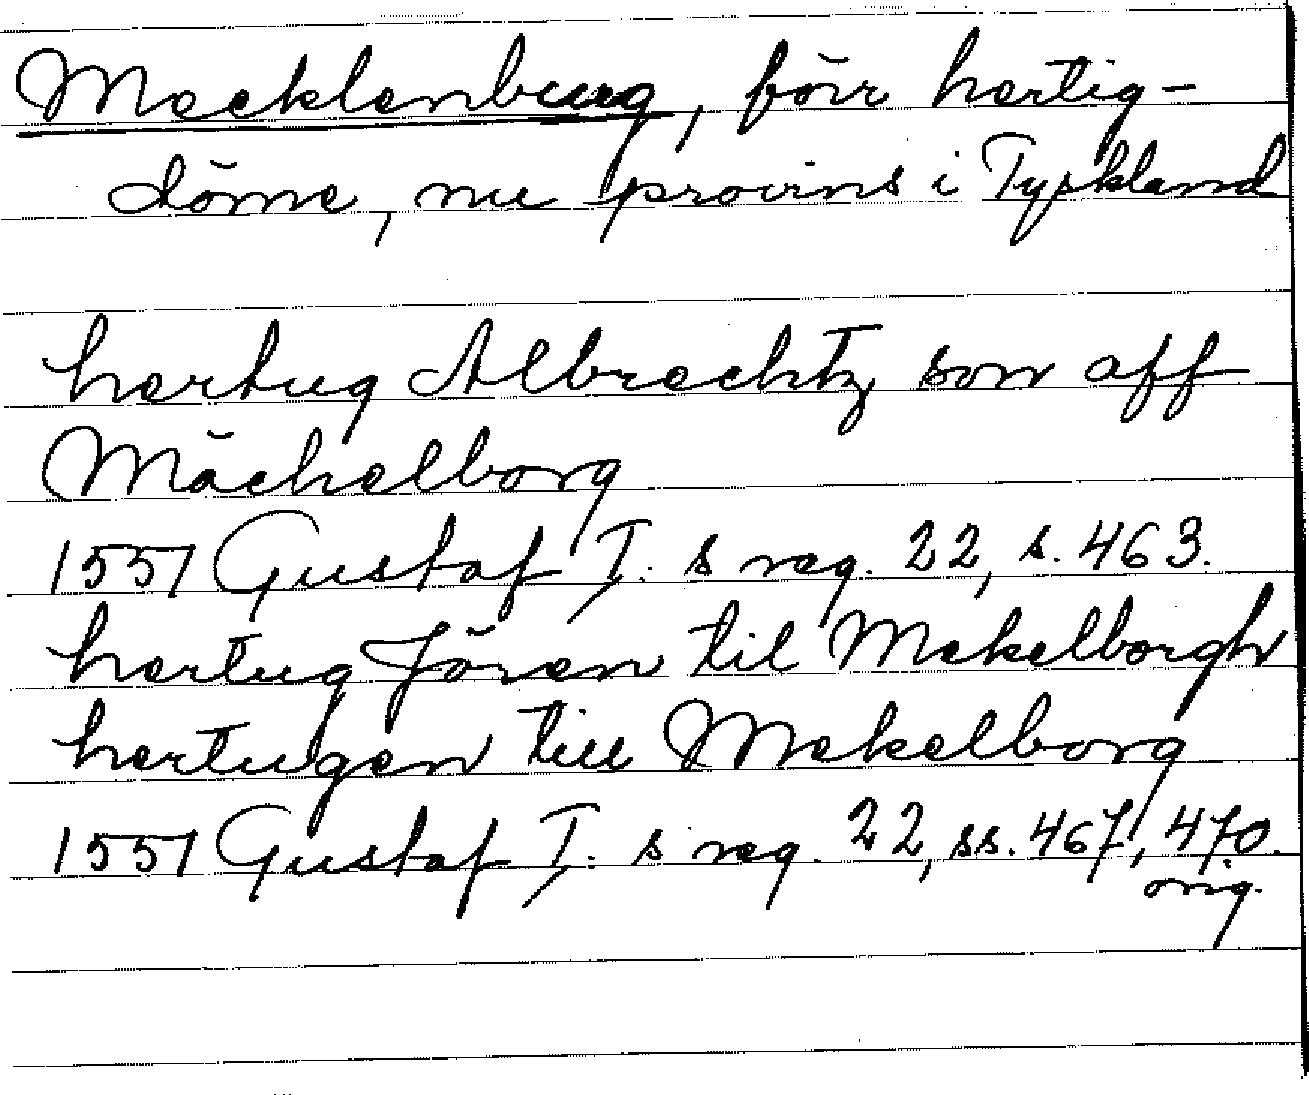 Mecklenburg, förr hertig-
döme, nu provins i Tyskland
hertug Albrechtz son aff
Mächelborg
1551 Gustaf I:s reg. 22, s. 463.
hertug Jören til Mekelborgh
hertugen till Mekelborg
1551 Gustaf I:s reg. 22, ss. 467, 470.
orig.